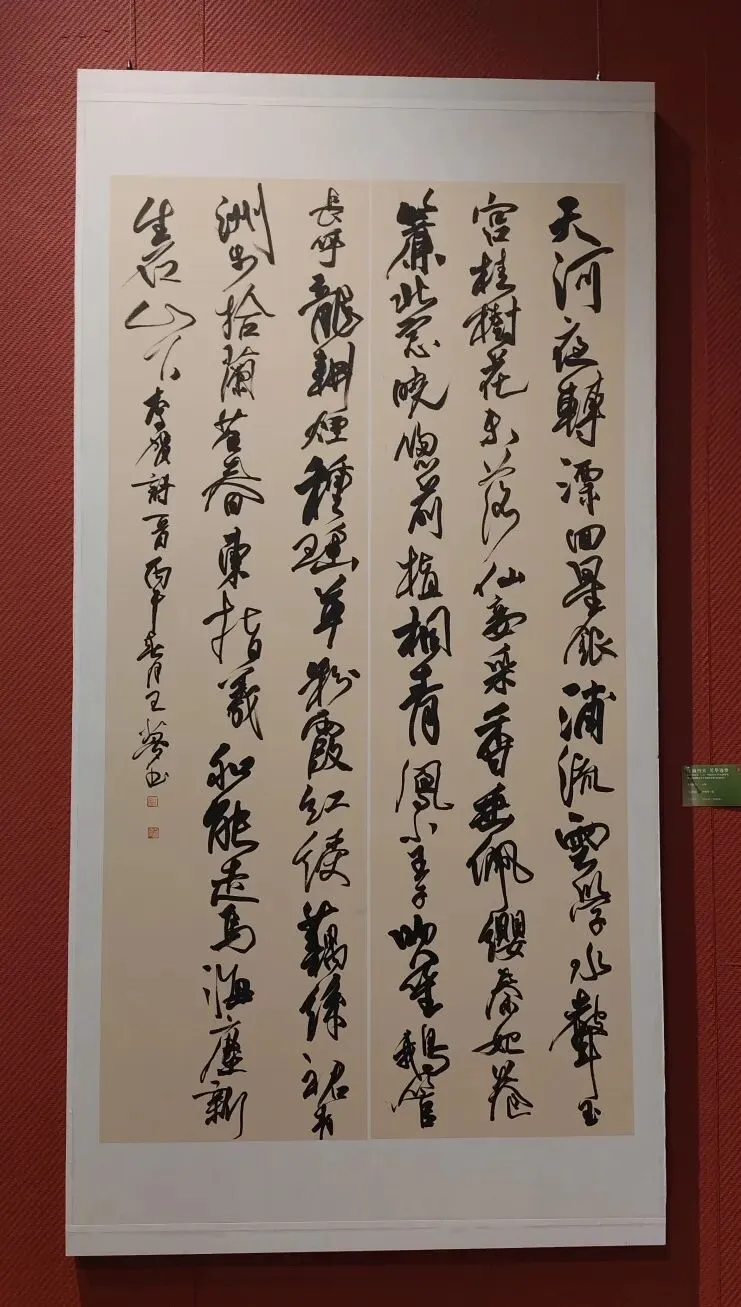 天河夜轉漂回星銀浦流雲學水聲玉
宮桂樹花未落仙妾采香垂佩纓秦妃卷
簾北窗曉窗前植桐青鳳小王子吹笙鵝管
長呼龍耕煙種瑤草粉霞紅綬藕絲裙青
洲步拾蘭苕春東指羲和能走馬海塵新
生石山下 李賀詩一首 丙午春月王夢書